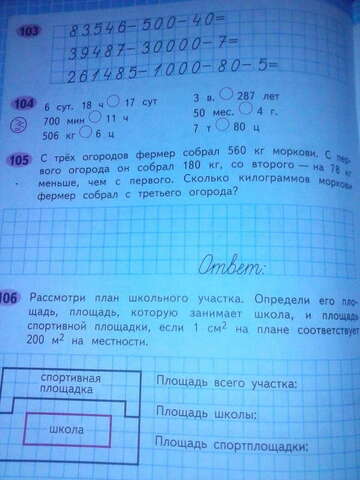 103
83546-500-40=
39487-30000-7=
261485-1000-80-5=
104
6 сут. 18 ч ○ 17 сут
3 в. ○ 287 лет
700 мин ○ 11 ч
50 мес. ○ 4 г.
506 кг ○ 6 ц
7 т ○ 80 ц
105
С трёх огородов фермер собрал 560 кг моркови. С пер-
вого огорода он собрал 180 кг, со второго — на 78 кг
меньше, чем с первого. Сколько килограммов моркови
фермер собрал с третьего огорода?
Ответ:
106
Рассмотри план школьного участка. Определи его пло-
щадь, площадь, которую занимает школа, и площадь
спортивной площадки, если 1 см² на плане соответствует
200 м² на местности.
спортивная
площадка
школа
Площадь всего участка:
Площадь школы:
Площадь спортплощадки: